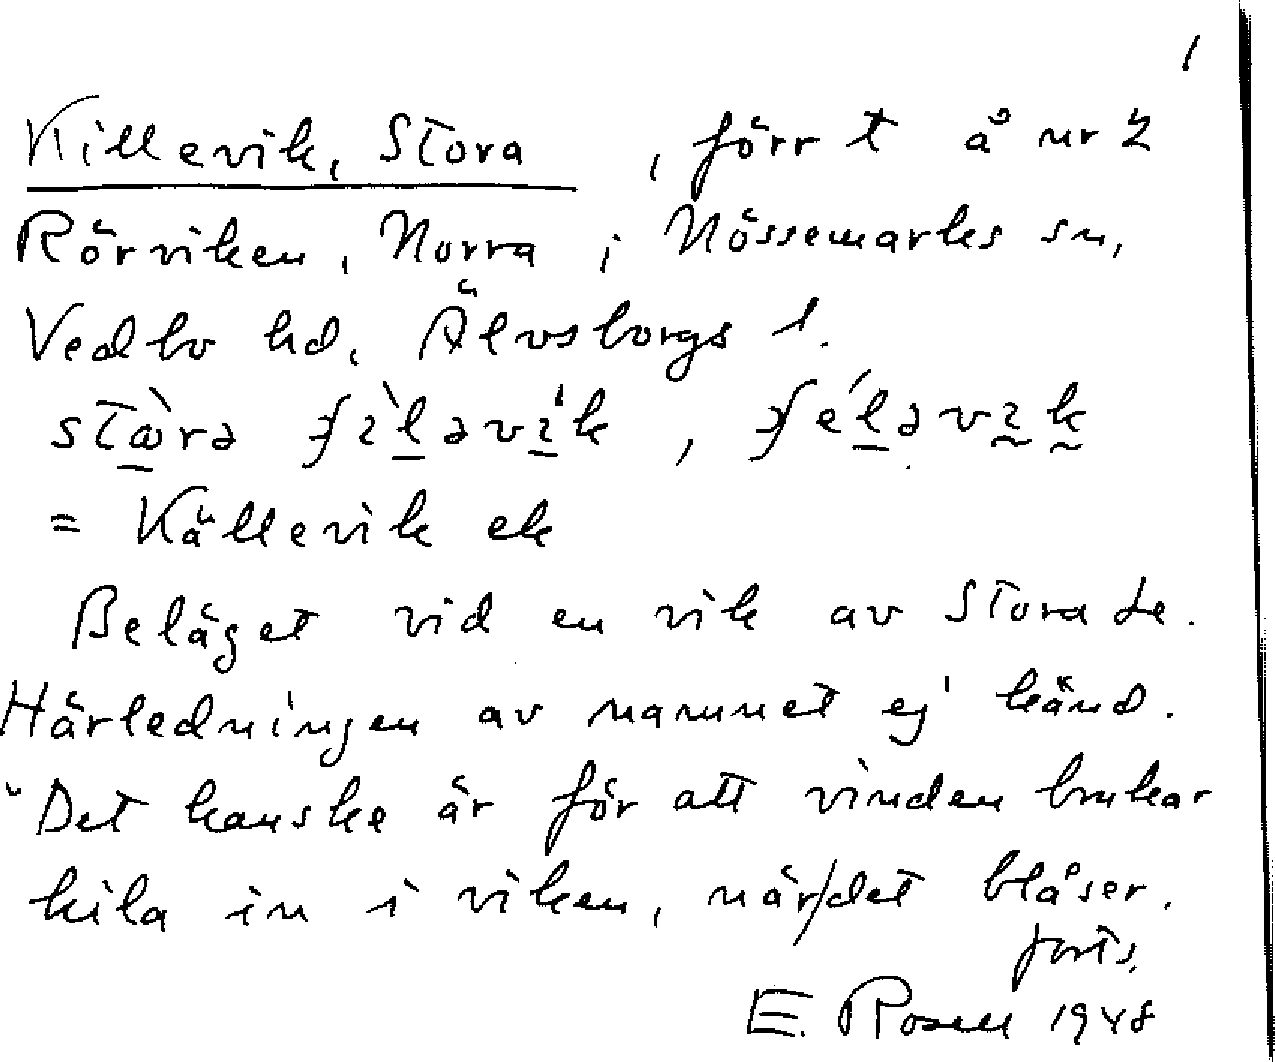 1
Killevik, Stora , förr t å nr 2
Rörviken, Norra i Nössemarks sn,
Vedbo hd, Älvsborgs l.
= Källevik ek
Beläget vid en vik av Stora Le.
Härledningen av namnet ej känd.
"Det kanske är för att vinden brukar
kila in i viken, när/det blåser.
forts.
E. Rosell 1948